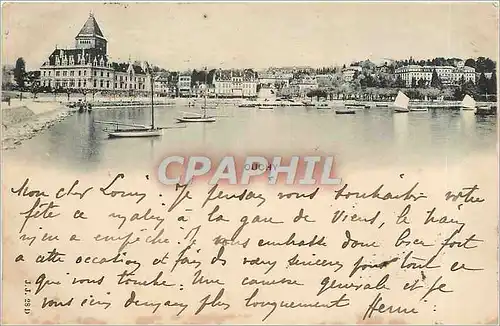 CPAPHIL
OUCHY
Mon cher Louis. Je pensais vous souhaiter votre
fête ce matin à la gare de Viens, le train
m'en a empêché. Je vous embrasse donc bien fort
a cette occation et fais des vœux sincères pour tout ce
qui vous touche. Une caresse générale et je
vous écris demain plus longuement
J.J. 28 D